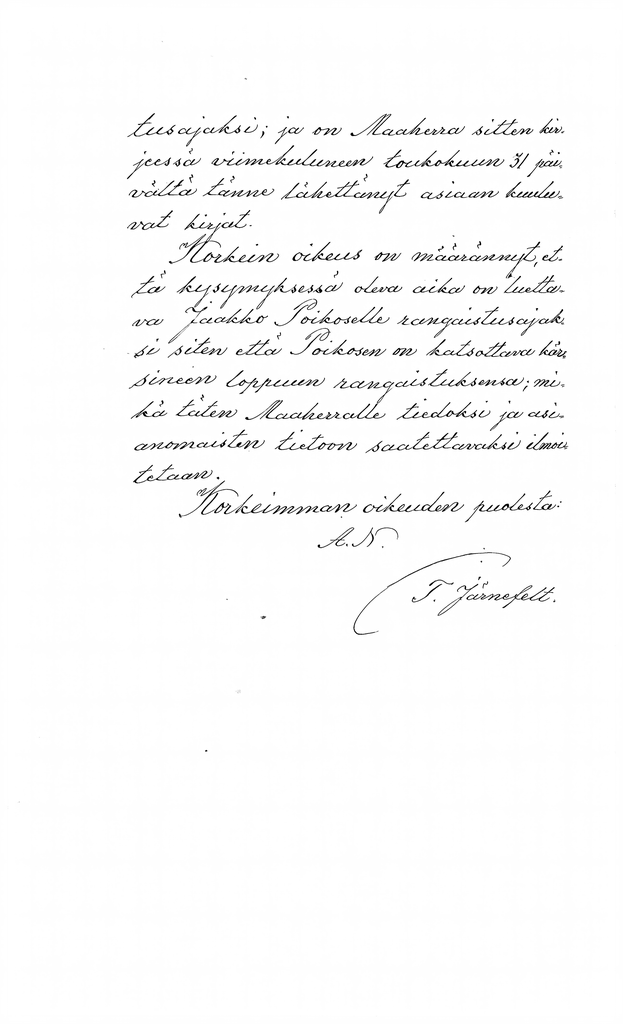 tusajaksi; ja on Maaherra sitten kir-
jeessä viimekuluneen toukokuun 31 päi-
vältä tänne lähettänyt asiaan kuulu-
vat kirjat.
Korkein oikeus on määrännyt, et-
tä kysymyksessä oleva aika on luetta-
va Jaakko Poikoselle rangaistusajak-
si siten että Poikosen on katsottava kär-
sineen loppuun rangaistuksensa; mi-
kä täten Maaherralle tiedoksi ja asi-
anomaisten tietoon saatettavaksi ilmoi-
tetaan.
Korkeimman oikeuden puolesta:
A.N.
T. Järnefelt.